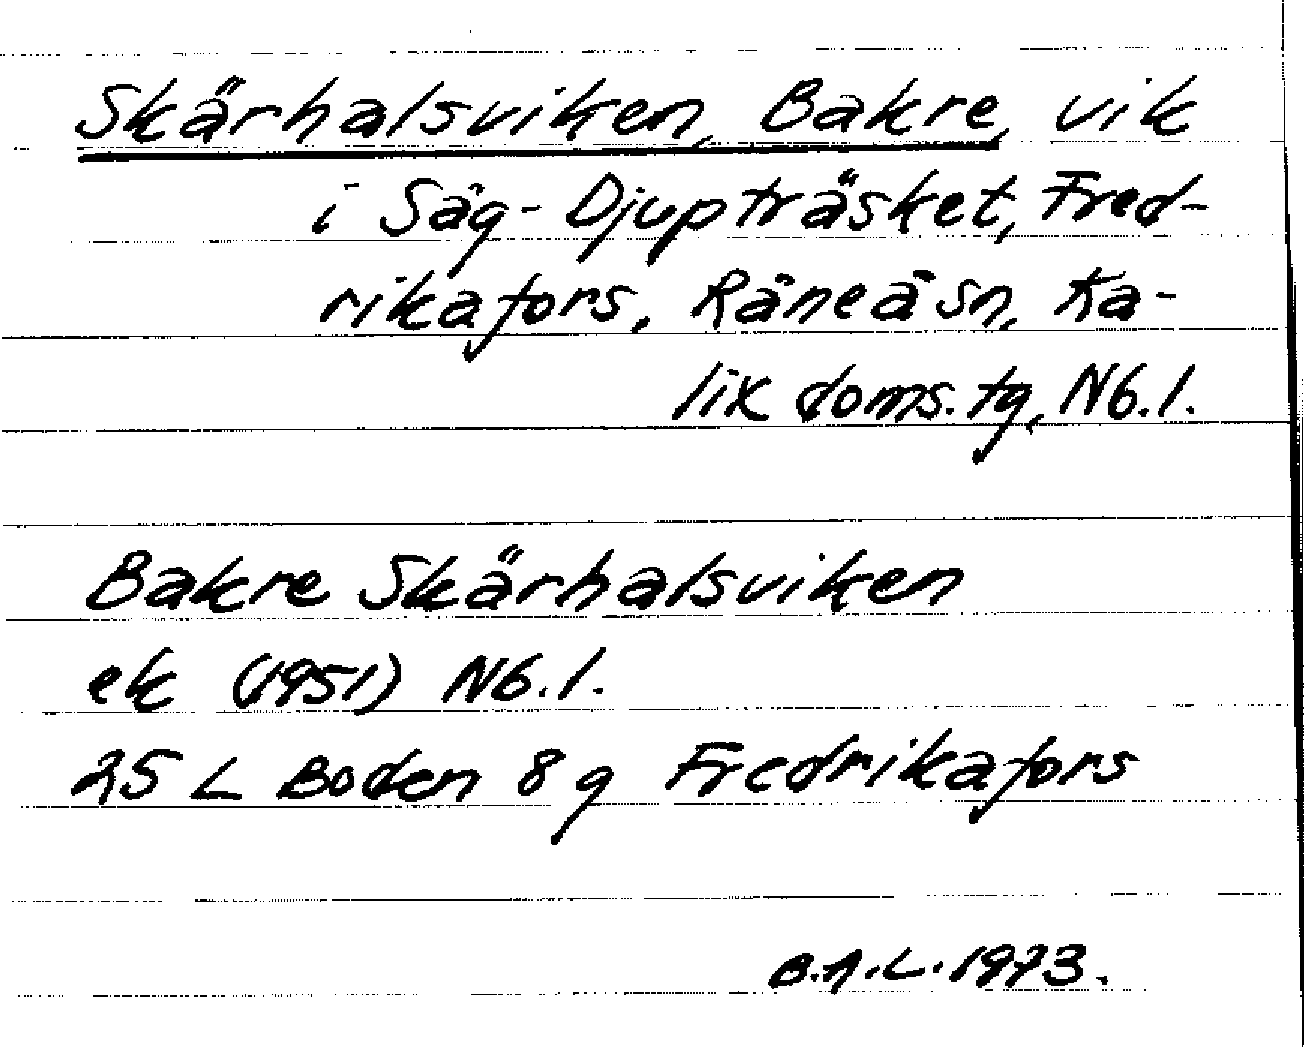 Skärhalsviken, Bakre, vik
i Såg-Djupträsket, Fred-
rikafors, Råneå sn, Ka-
lix doms. tg, Nb. l.
Bakre Skärhalsviken
ek (1951) Nb. l.
25 L Boden 8 g Fredrikafors
B.A.L. 1973.